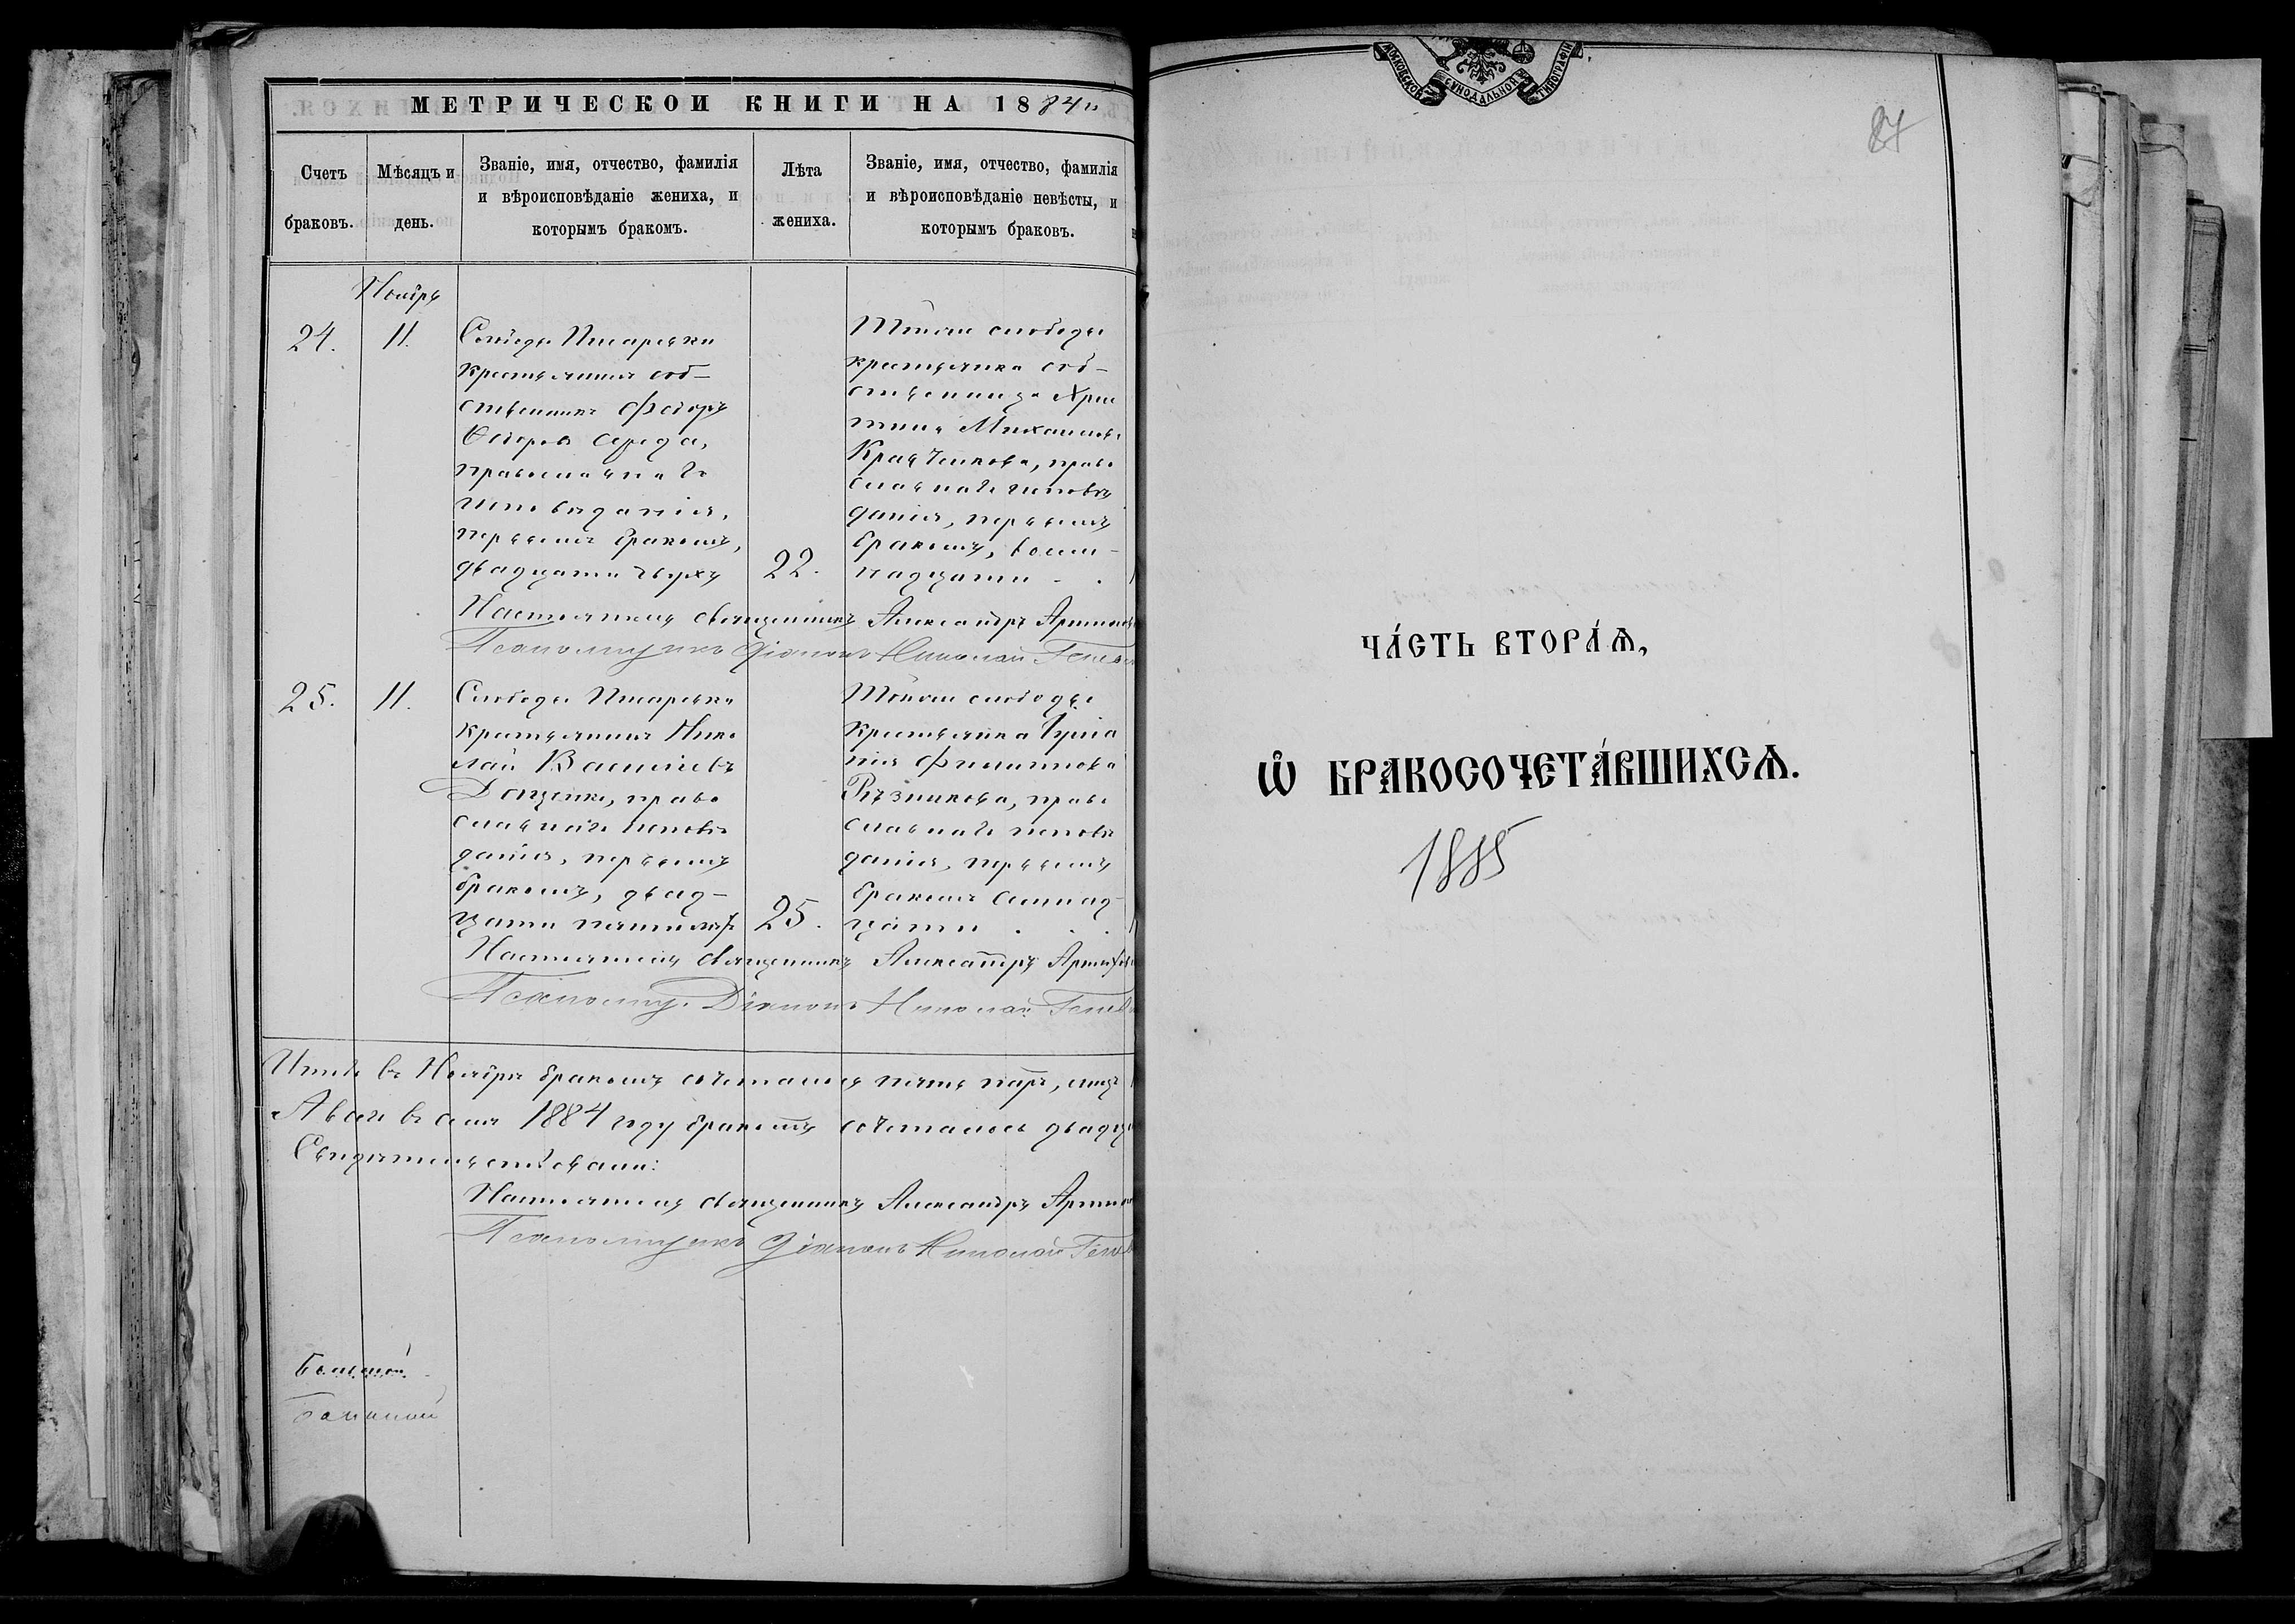 МЕТРИЧЕСКОЙ КНИГИ НА 1884
Счетъ браковъ.
Мѣсяцъ и день.
Званіе, имя, отчество, фамилія
и вѣроисповѣданіе жениха, и
которымъ бракомъ.
Лѣта жениха.
Званіе, имя, отчество, фамилія
и вѣроисповѣданіе невѣсты, и
которымъ браковъ.
Ноябрь
24.
11.
Слободы Писаревки
крестьянинъ соб-
ственникъ Феодоръ
Середа,
православнаго
исповѣданія,
первымъ бракомъ,
двадцати двухъ
22.
Тойже слободы
крестьянка соб-
ственница Хри
стина Михаилова
Кравченкова, право
славнаго исповѣ
данія, первымъ
бракомъ, восем-
надцати
Настоятель священникъ Александръ
Псаломщикъ Діаконъ Николай
25.
11.
Слободы Писаревки
крестьянинъ Нико
лай Васильевъ
Доценко, право
славнаго исповѣ
данія, первымъ
бракомъ, двад-
цати пяти лѣтъ
25.
Тойже слободы
крестьянка
Филиппова
Рѣзникова, право
славнаго исповѣ
данія, первымъ
бракомъ семнад-
цати
Настоятель священникъ Александръ
Псаломщ. Діаконъ Николай
Итого въ Ноябрѣ бракомъ сочеталось пять паръ,
А всего въ семъ 1884 году бракомъ сочеталось
Свидѣтельствовали:
Настоятель священникъ Александръ
Псаломщикъ Діаконъ Николай
МОСКОВСКОЙ СѴНОДАЛЬНОЙ ТИПОГРАФІИ
ЧА́СТЬ ВТОРА́Ѧ,
Ѽ БРАКОСОЧЕТА́ВШИХСѦ.
1885